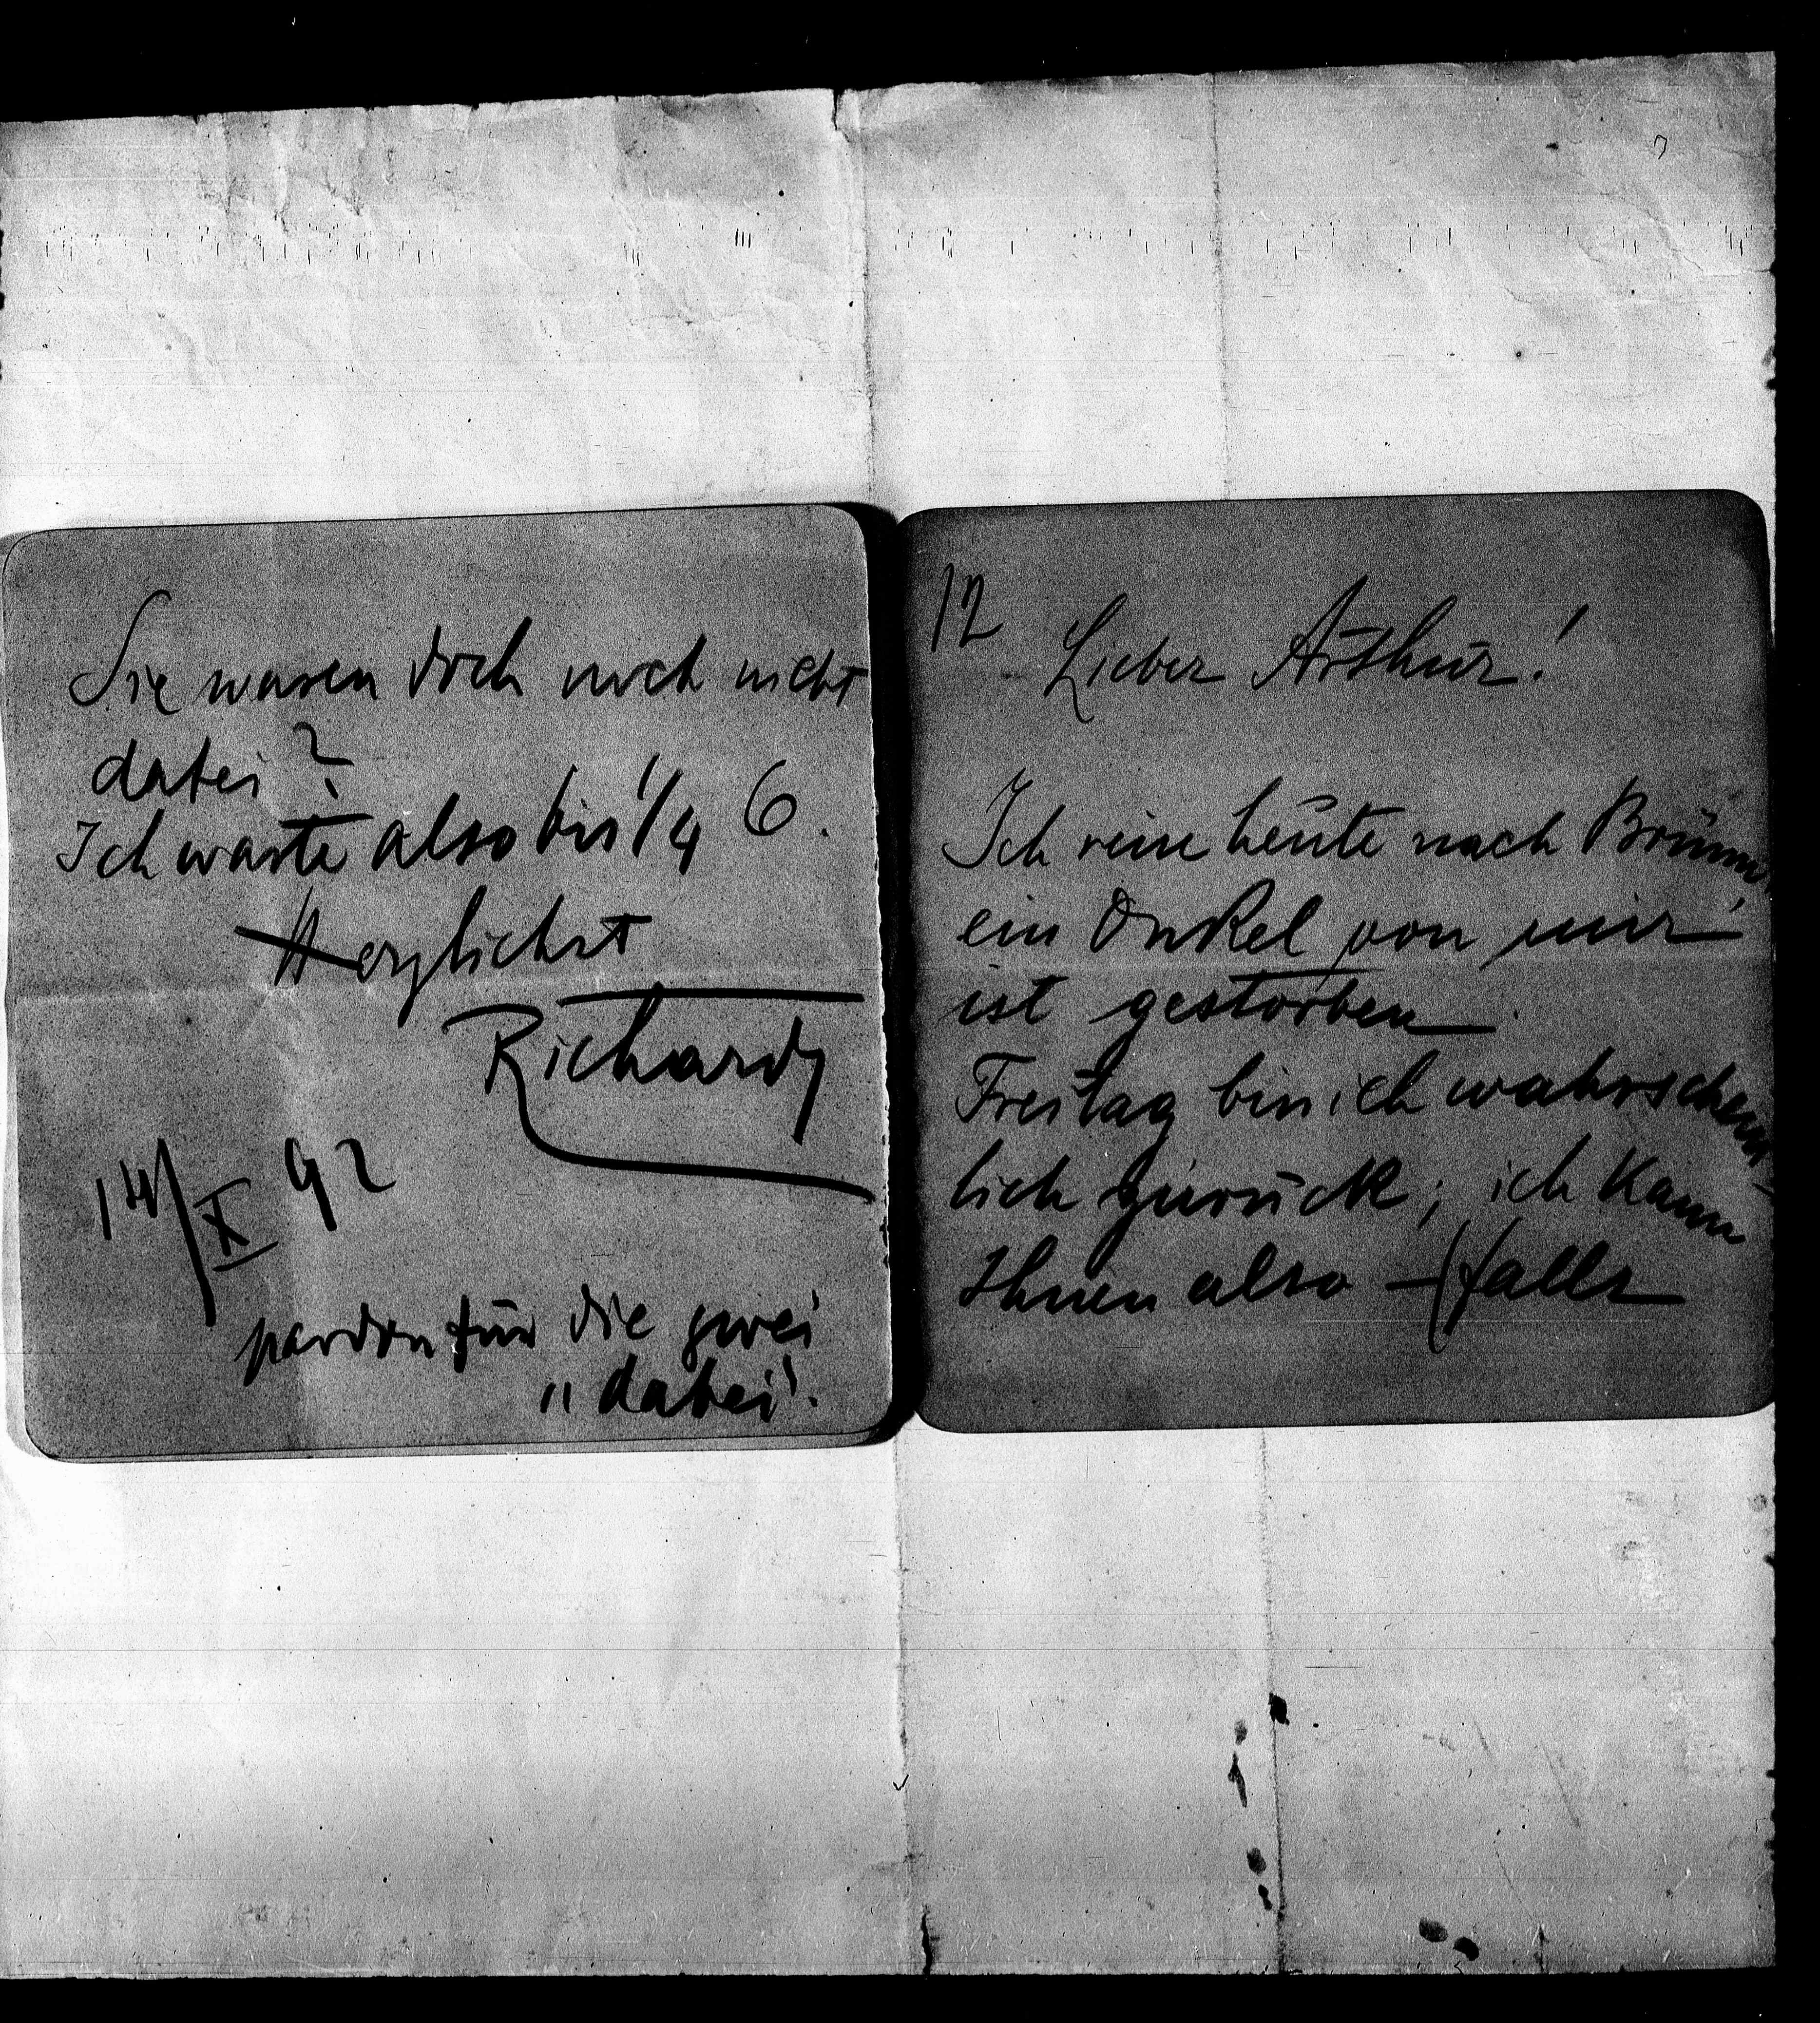 Sie waren doch noch nicht
dabei?
Ich warte also bis 1/4 6.
Herzlichst
Richard
14/X 92
pardon für die zwei
„dabei".
12
Lieber Arthur!
Ich reise heute nach Brünn
ein Onkel von mir
ist gestorben.
Freitag bin ich wahrschein-
lich zurück; ich kann
Ihnen also – (falls